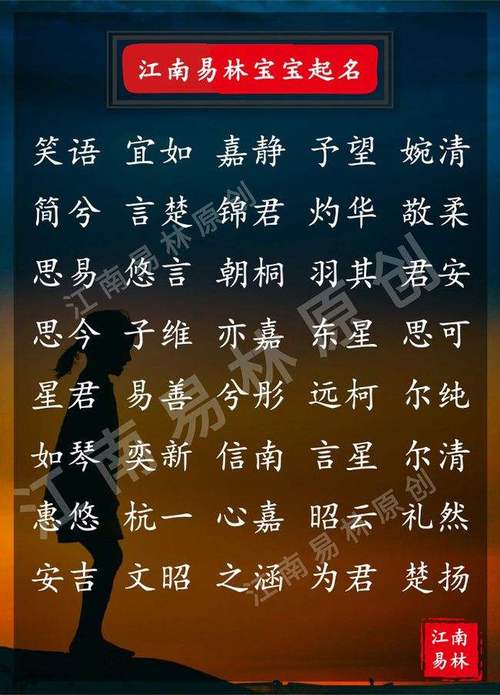 江南易林宝宝起名
笑语 宜如 嘉静 予望 婉清
简兮 言楚 锦君 灼华 敬柔
思易 悠言 朝桐 羽其 君安
思今 子维 亦嘉 东星 思可
星君 易善 兮彤 远柯 尔纯
如琴 奕新 信南 言星 尔清
惠悠 杭一 心嘉 昭云 礼然
安吉 文昭 之涵 为君 楚扬
江南易林原创
江南易林原创
江南易林原创
江南
易林